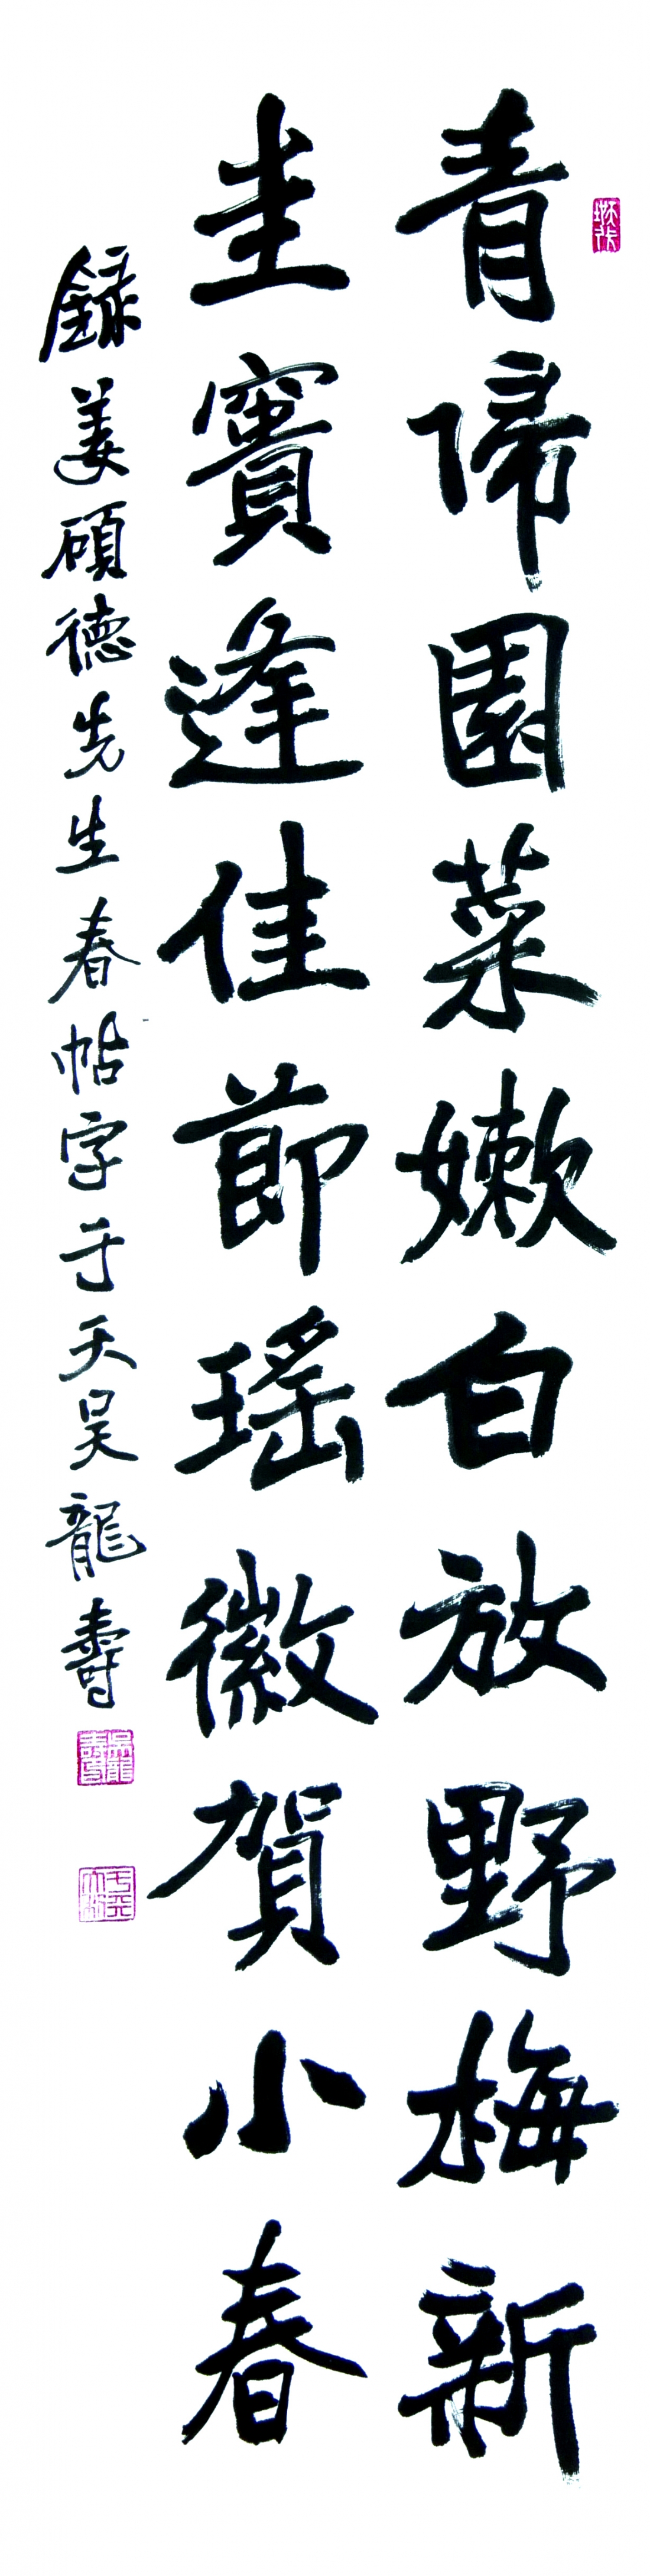 青歸園菜嫩白放野梅新
圭竇逢佳節瑤徽賀小春
録姜碩德先生春帖字于天昊龍壽